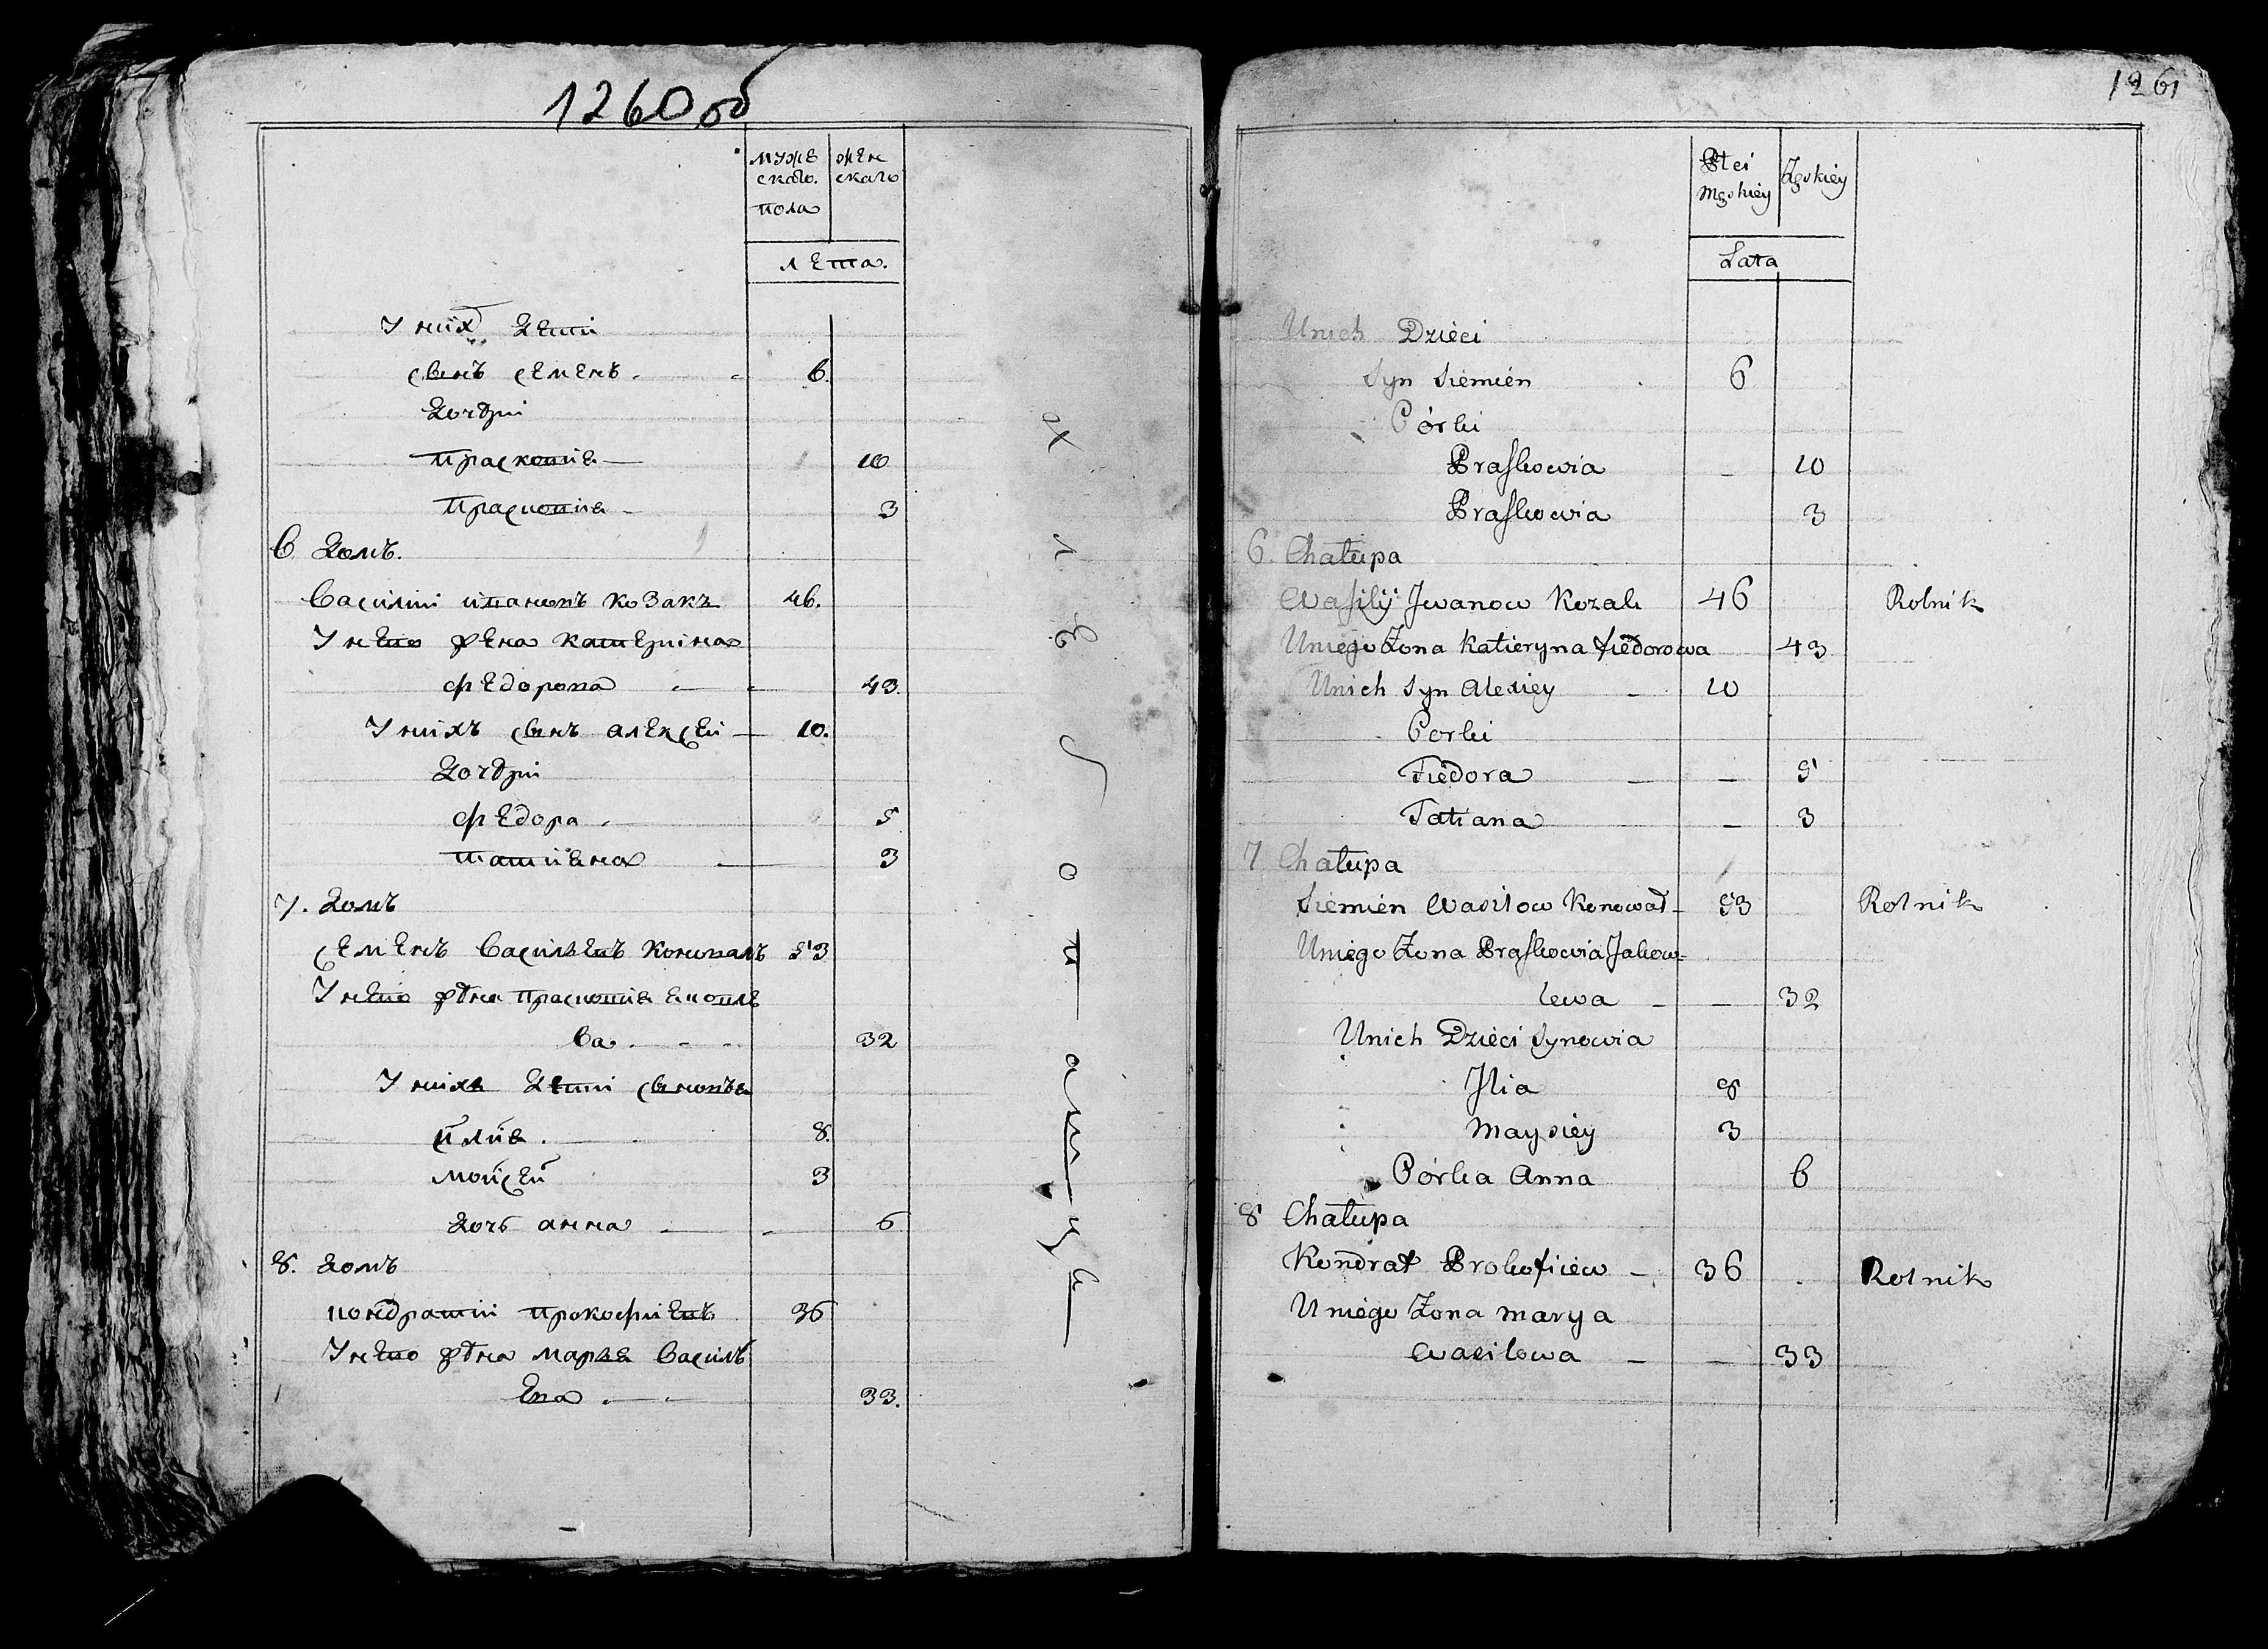 1260 об
муже
ского.
пола
жен
скаго
лета.
У них дети
сынъ семенъ 6.
дочери
праскотя 10
Праскотя 3
6 домъ.
Василии иванов козакъ 46.
У него жена катерина
федорова 43.
У нихъ сынъ алексеи 10.
дочери
федора 5
татияна 3
7. домъ
семенъ Васильевъ коновалъ 53
У него жена Прасковия яковле
ва 32
У нихъ дети сыновья
илия 8.
Моисеи 3
дочь анна 6
8. домъ
кондратии прокофиевъ 36
У него жена марья Василь
ева 33.
хлебопашцы
1261
Płci
Męskiéy
Żeńskiéy
Lata
Unich Dziéci
Syn Siemién 6
Córki
Praskowia - 10
Praskowia 3
6. Chałupa
Wasilij Jwanow Kozak 46 Rolnik
Uniégo Żona Katieryna fiedorowa 43
Unich Syn Alexiéy - 10
Corki
Fiédora - - 5
Tatiana - 3
7 Chałupa
Siémién Wasilow Konował - 53 Rolnik
Uniégo Żona Praskowia Jakow=
lewa - - 32
Unich Dziéci Synowia
Jlia 8
Maysiéy 3
Córka Anna 6
8 Chałupa
Kondrat Prokofiéw - 36 Rolnik
Uniégo Żona Marya
Wasilowa - - 33